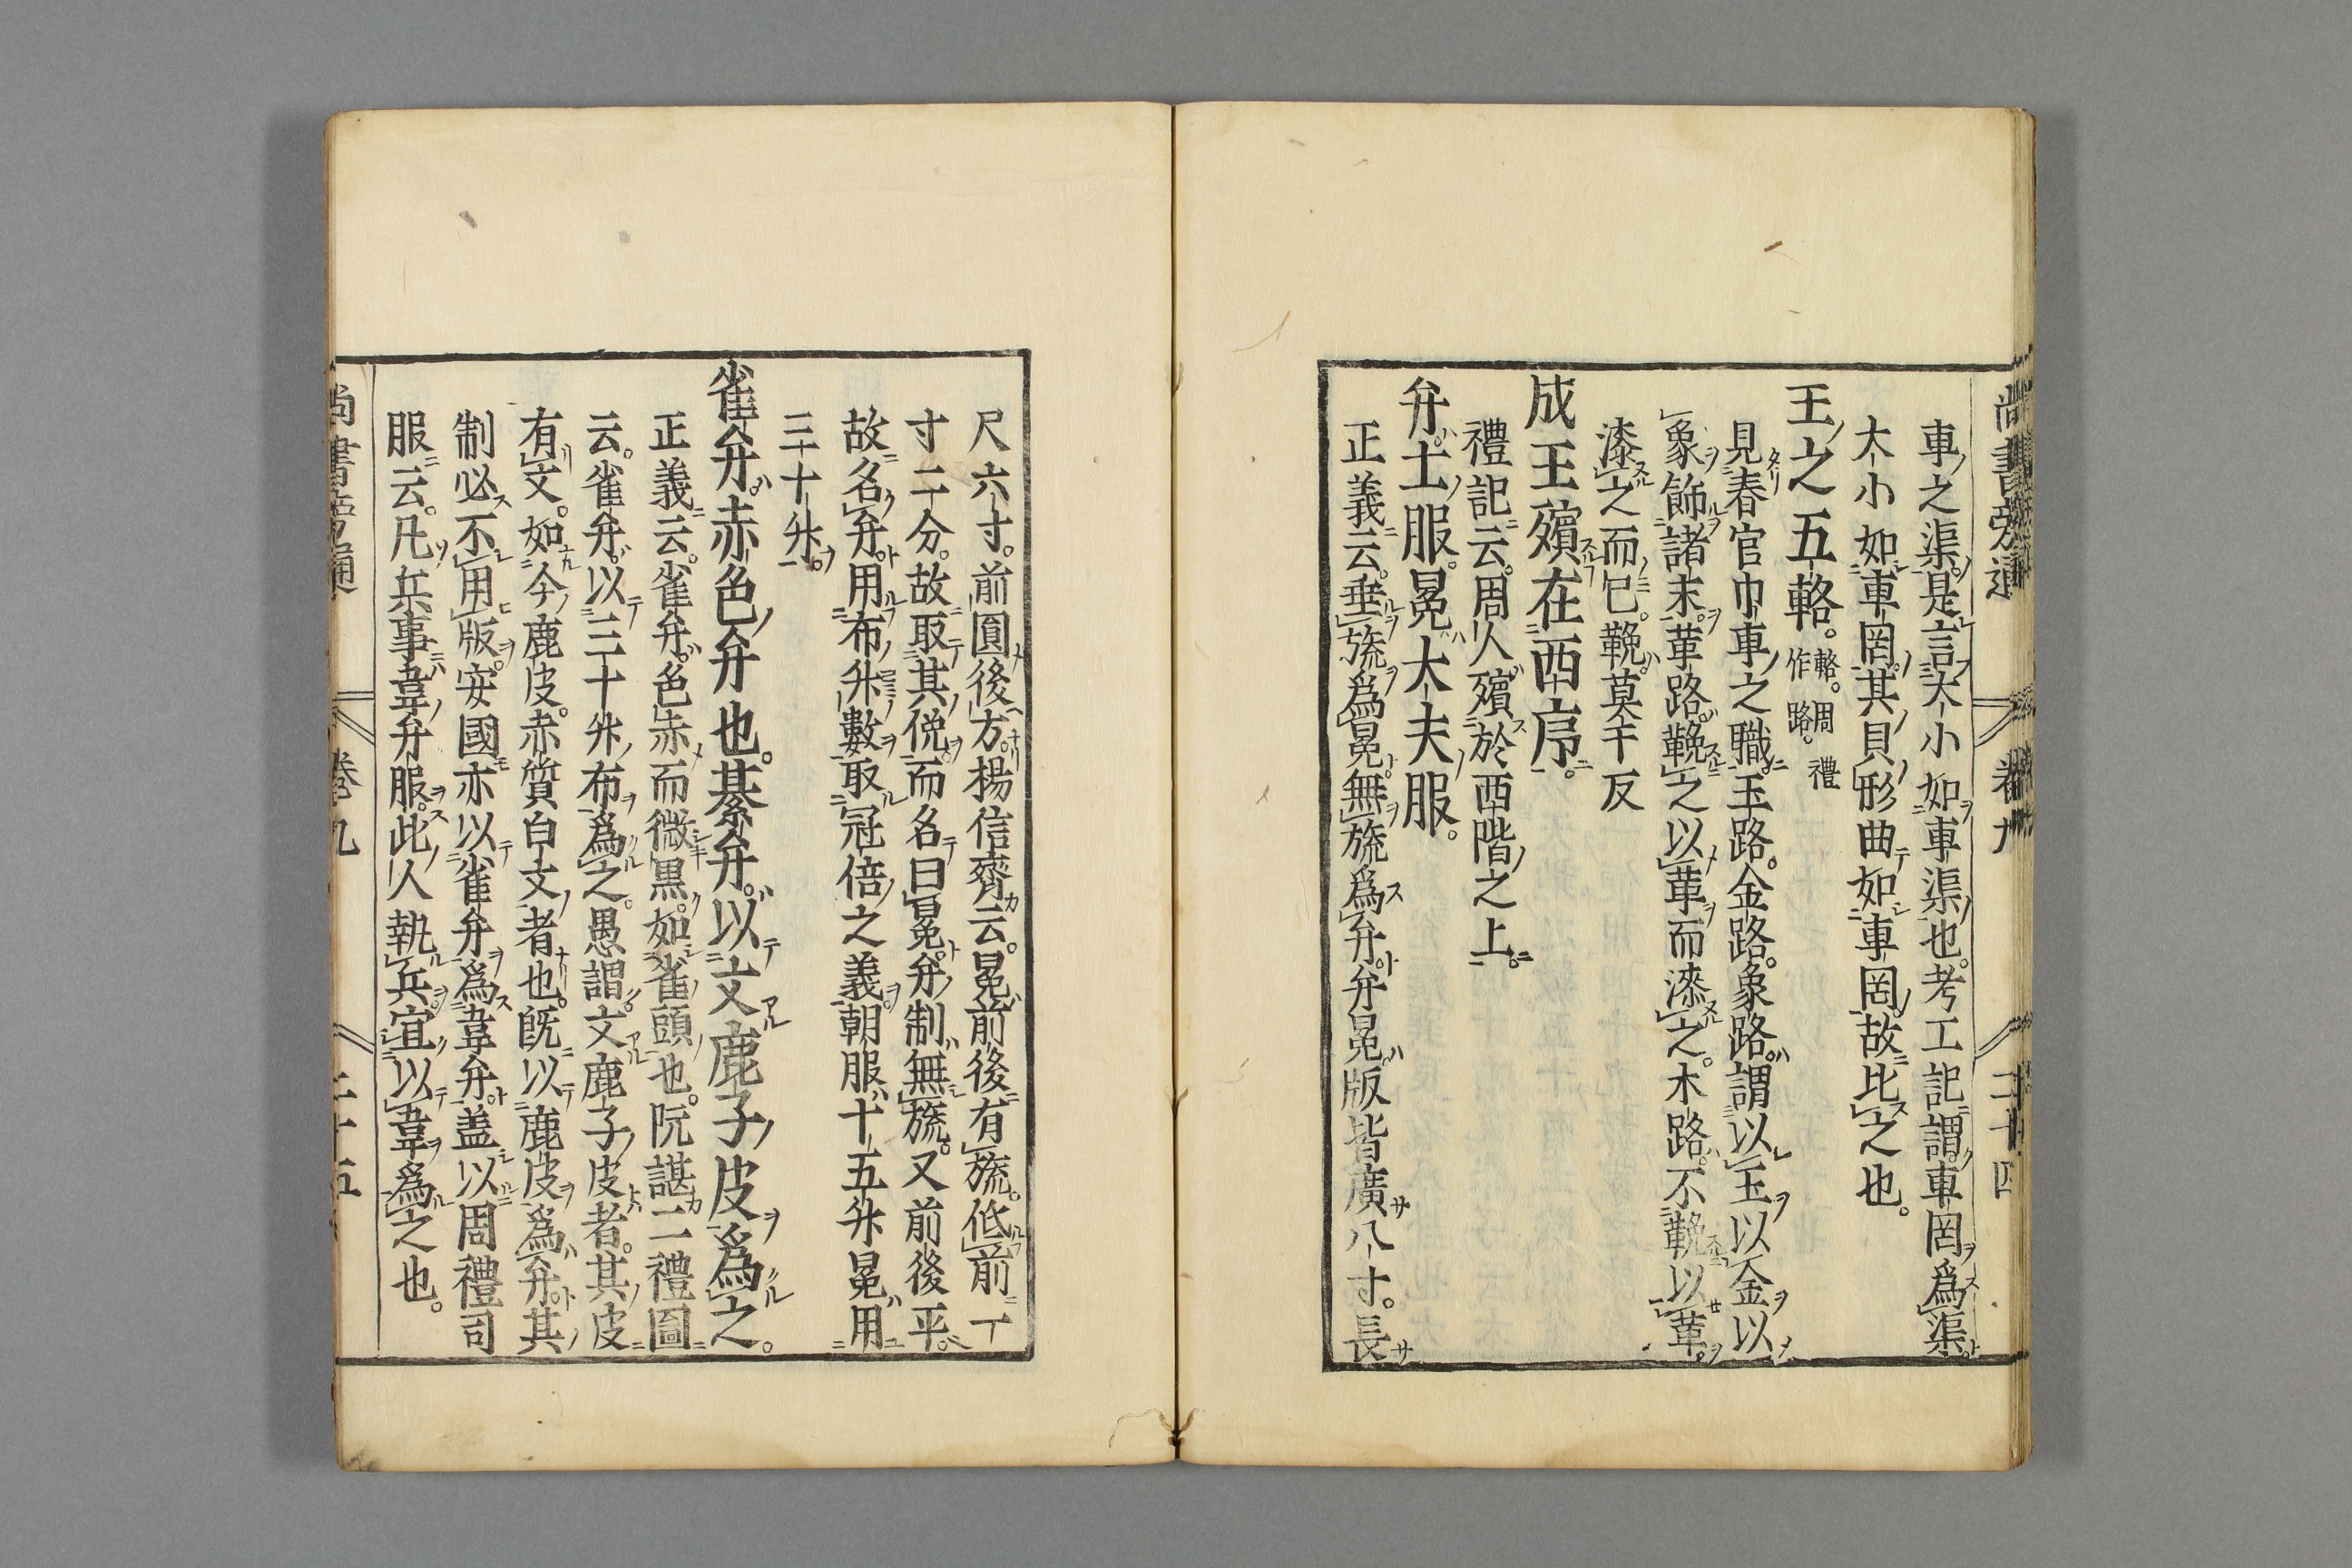 尚書旁通 卷九 三十四
車之渠。是言大小如車渠也。考工記謂。車罔爲渠。
大小如車罔。其貝形曲如車罔。故比之也。
王之五輅。輅。周禮作路。
見春官巾車之職。玉路。金路。象路。謂以玉以金以
象飾諸末。革路。鞔之以革而漆之。木路。不鞔以革。
漆之而已。鞔。莫干反
成王殯在西序。
禮記云。周人殯於西階之上。
弁。士服。冕。大夫服。
正義云。垂旒爲冕。無旒爲弁。弁冕版皆廣八寸。長
尺六寸。前圓後方。楊信齋云。冕前後有旒。低前一
寸二分。故取其俛而名曰冕。弁制無旒。又前後平。
故名弁。用布升數取冠倍之義。朝服十五升。冕用
三十升。
雀弁。赤色弁也。綦弁。以文鹿子皮爲之。
正義云。雀弁。色赤而微黒。如雀頭也。阮諶二禮圖
云。雀弁。以三十升布爲之。愚謂。文鹿子皮者。其皮
有文。如今鹿皮。赤質白文者也。既以鹿皮爲弁。其
制必不用版。安國亦以雀弁爲韋弁。盖以周禮司
服云。凡兵事韋弁服。此人執兵。宜以韋爲之也。
尚書旁通 卷九 三十五